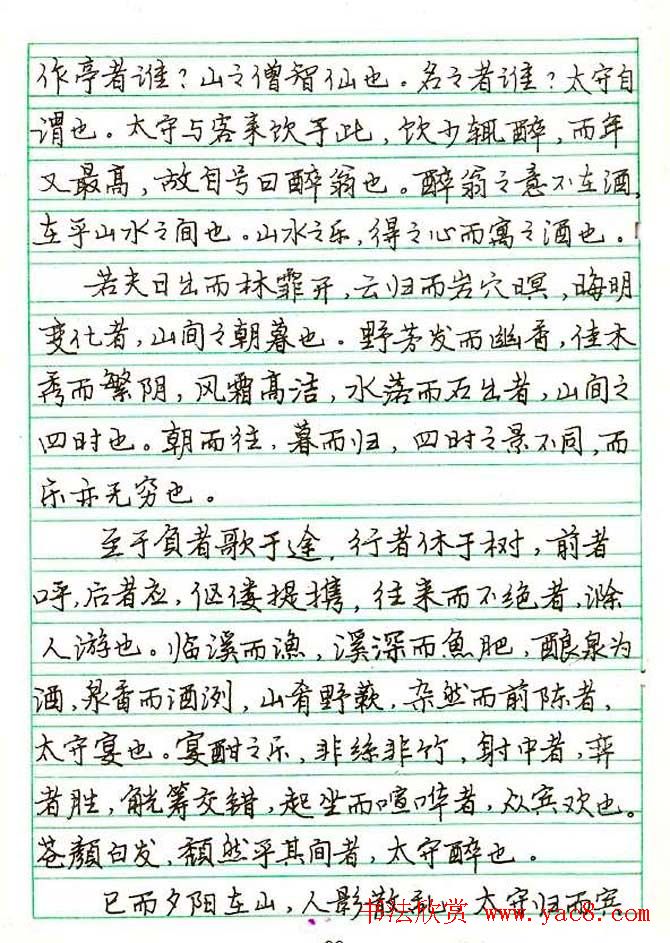 作亭者谁？山之僧智仙也。名之者谁？太守自
谓也。太守与客来饮于此，饮少辄醉，而年
又最高，故自号曰醉翁也。醉翁之意不在酒，
在乎山水之间也。山水之乐，得之心而寓之酒也。
若夫日出而林霏开，云归而岩穴暝，晦明
变化者，山间之朝暮也。野芳发而幽香，佳木
秀而繁阴，风霜高洁，水落而石出者，山间之
四时也。朝而往，暮而归，四时之景不同，而
乐亦无穷也。
至于负者歌于途，行者休于树，前者
呼，后者应，伛偻提携，往来而不绝者，滁
人游也。临溪而渔，溪深而魚肥，酿泉为
酒，泉香而酒洌，山肴野蔌，杂然而前陈者，
太守宴也。宴酣之乐，非丝非竹，射中者，弈
者胜，觥筹交错，起坐而喧哗者，众宾欢也。
苍颜白发，颓然乎其间者，太守醉也。
已而夕阳在山，人影散乱，太守归而宾
书法欣赏 www.yac8.com